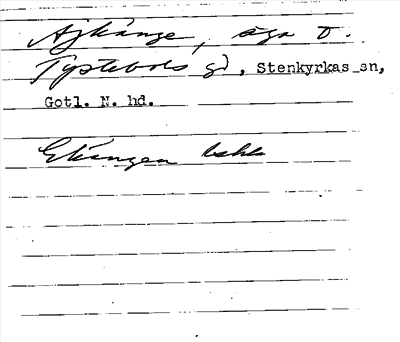 Ajkänge, äga t.
Tystebols gd, Stenkyrkas sn,
Gotl. N. hd.
Ekängen